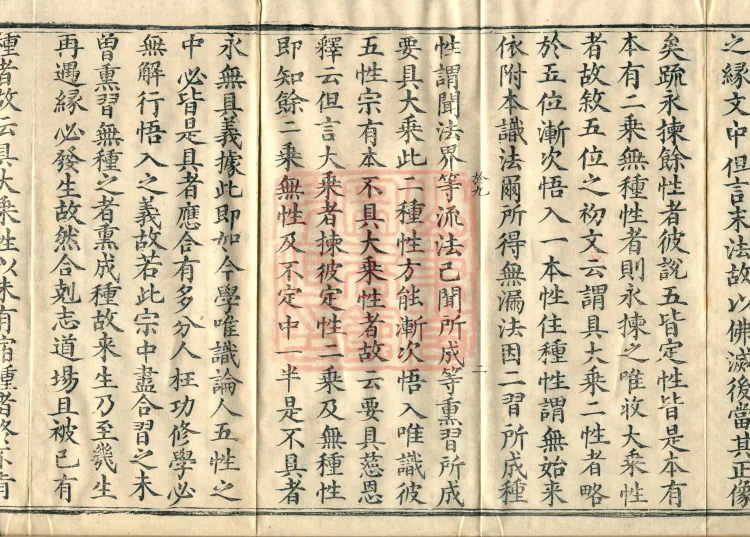 之緣文中但言末法故以佛滅後當其正像
矣疏永揀餘性者彼說五皆定性皆是本有
本有二乘無種性者則永揀之唯收大乘性
者故敘五位之初文云謂具大乘二性者略
於五位漸次悟入一本性住種性謂無始來
依附本識法爾所得無漏法因二習所成種
性謂聞法界等流法已聞所成等熏習所成
要具大乘此二種性方能漸次悟入唯識彼
五性宗有本不具大乘性者故云要具慈恩
釋云但言大乘者揀彼定性二乘及無種性
即知餘二乘無性及不定中一半是不具者
永無具義據此即如今學唯識論人五性之
中必皆是具者應合有多分人枉功修學必
無解行悟入之義故若此宗中盡合習之未
曾熏習無種之者熏成種故來生乃至幾生
再遇緣必發生故然合剋志道場且被已有
種者故云具大乘性以未有宿種者終不有